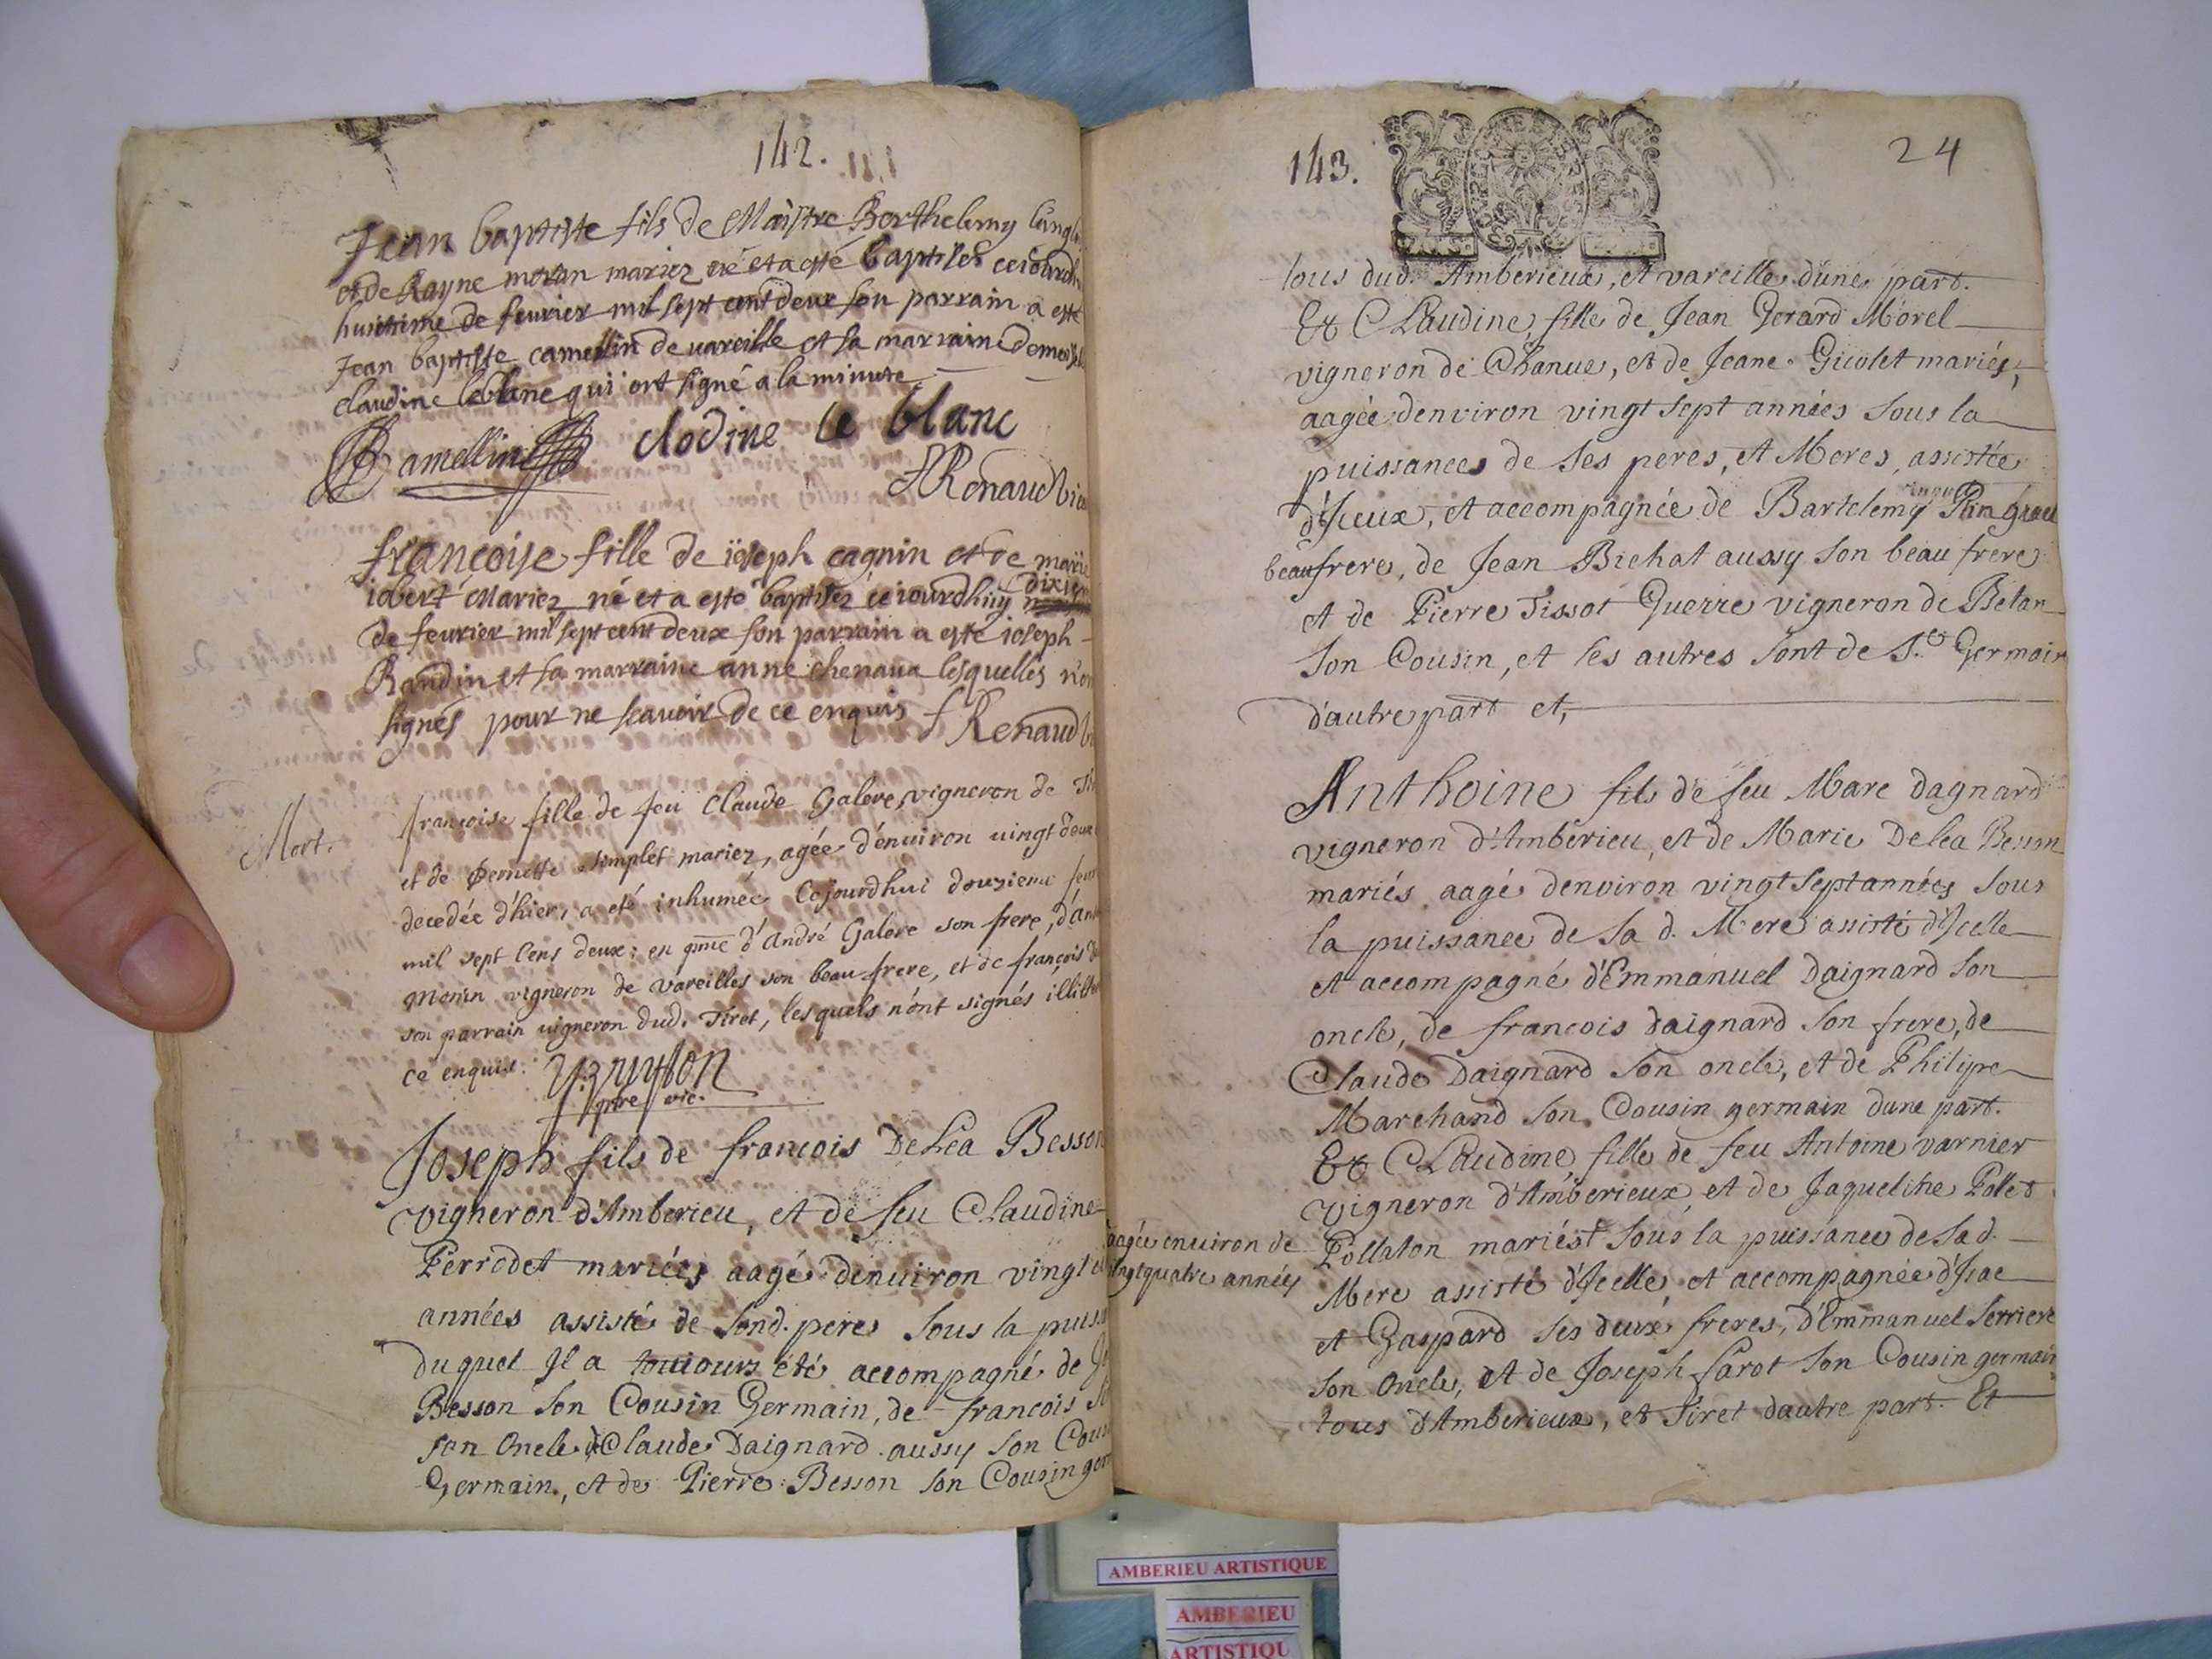 142.
Jean baptiste fils de Maistre Berthelemy
et de Rayne moran mariez né et a esté baptisés ce iourdh
huictieme de feurier mil sept cent deux son parrain a esté
Jean baptiste camellin de uareille et sa marraine
claudine leblanc qui ont signé a la minute
Camellin clodine le blanc
Renaud
francoise fille de ioseph cagnin et de marie
ibert Mariez né et a esté baptisez ce iourdhuy dixiem
de feurier mil sept cent deux son parrain a esté ioseph
Raudin et sa marraine anne chenaua lesquelles n'on
signés pour ne scauoir de ce enquis Renaud
Mort.
francoise fille de feu Claude Galere, vigneron de
et de Pernette Semplet mariez, agée d'énuiron uingt deux
decedée d'hier, a eté inhumée Cejourdhui douzieme feur
mil sept Cens deux: en pnce d'André Galére son frere,
Monin vigneron de Vareilles son beau-frere, et de françois
son parrain uigneron dud. Tiret, lesquels n'ont signés
ce enquis:
pre vic.
Joseph fils de francois DeLéa Besson
vigneron d'Amberieu, et de feu Claudine
Perrodet mariés aagé denuiron vingt
années assisté de sond. pere sous la
duquel Jl a touiours été accompagné de
Besson son Cousin Germain, de francois
son Oncle de Claude Daignard aussy son
Germain, et de Pierre Besson son Cousin
143.
24
tous dud. Amberieux, et vareille dune part.
Et CLaudine fille de Jean Gerard Morel
vigneron de Chanue, et de Jeane Gicolet mariés,
aagée denviron vingt sept années sous la
puissances de ses peres, et Meres, assistée
d'Jceux, et accompagnée de Bartelemy
beaufrere, de Jean Bichat aussy son beau frere
et de Pierre Tissot Guerre vigneron de Betan
son Cousin, et les autres sont de St. Germain
d'autre part et,
Anthoine fils de feu Marc Dagnard
vigneron d'Amberieu, et de Marie DeLéa Besson
mariés aagé denviron vingt sept années sous
la puissance de sa d. Mere assisté d'Jcelle
et accompagné d'Emmanuel Daignard son
oncle, de francois daignard son frere, de
Claude Daignard son oncle, et de Philipe
Marchand son Cousin germain dune part.
Et CLaudine fille de feu Antoine varnier
vigneron d'Amberieux, et de Jaqueline Pollet
aagée enuiron de
vingtquatre années
Pollaton mariés† sous la puissance de sa d.
Mere assisté d'Jcelle, et accompagnée d'Jsac
et Gaspard ses deux freres, d'Emmanuel Serriere
son Oncle, et de Joseph Sarot son Cousin germain
tous d'Amberieux, et Tiret dautre part. Et
AMBERIEU ARTISTIQUE
AMBERIEU
ARTISTIQU